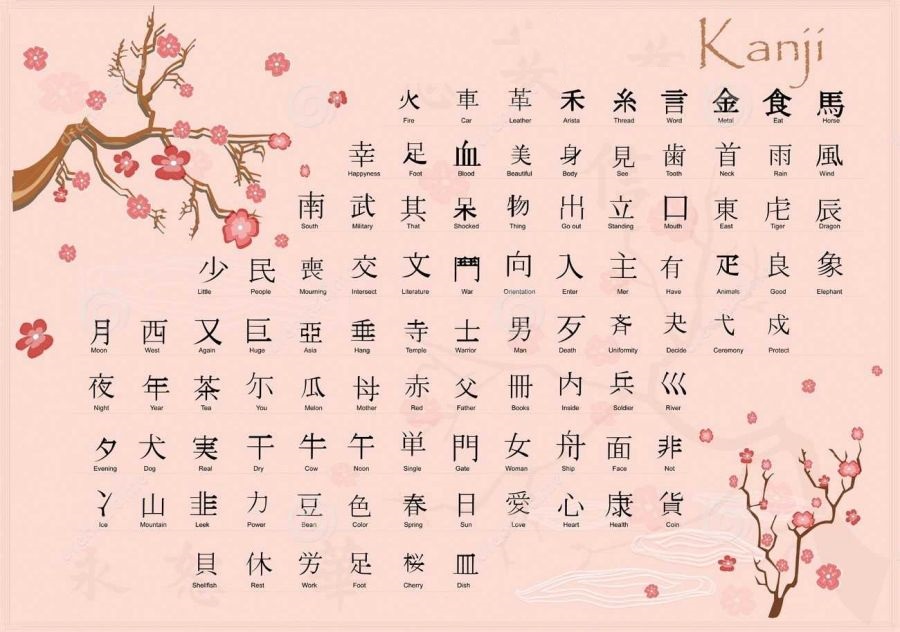 Kanji
火 車 革 禾 糸 言 金 食 馬
Fire Car Leather Arista Thread Word Metal Eat Horse
幸 足 血 美 身 見 歯 首 雨 風
Happyness Foot Blood Beautiful Body See Tooth Neck Rain Wind
南 武 其 呆 物 出 立 囗 東 虍 辰
South Military That Shocked Thing Go out Standing Mouth East Tiger Dragon
少 民 喪 交 文 鬥 向 入 主 有 疋 良 象
Little People Mourning Intersect Literature War Orientation Enter Mer Have Animals Good Elephant
月 西 又 巨 亞 垂 寺 士 男 歹 斉 夬 弋 戍
Moon West Again Huge Asia Hang Temple Warrior Man Death Uniformity Decide Ceremony Protect
夜 年 茶 尓 瓜 母 赤 父 冊 内 兵 巛
Night Year Tea You Melon Mother Red Father Books Inside Soldier River
夕 犬 実 干 牛 午 単 門 女 舟 面 非
Evening Dog Real Dry Cow Noon Single Gate Woman Ship Face Not
冫 山 韭 力 豆 色 春 日 愛 心 康 貨
Ice Mountain Leek Power Bean Color Spring Sun Love Heart Health Coin
貝 休 労 足 桜 皿
Shellfish Rest Work Foot Cherry Dish